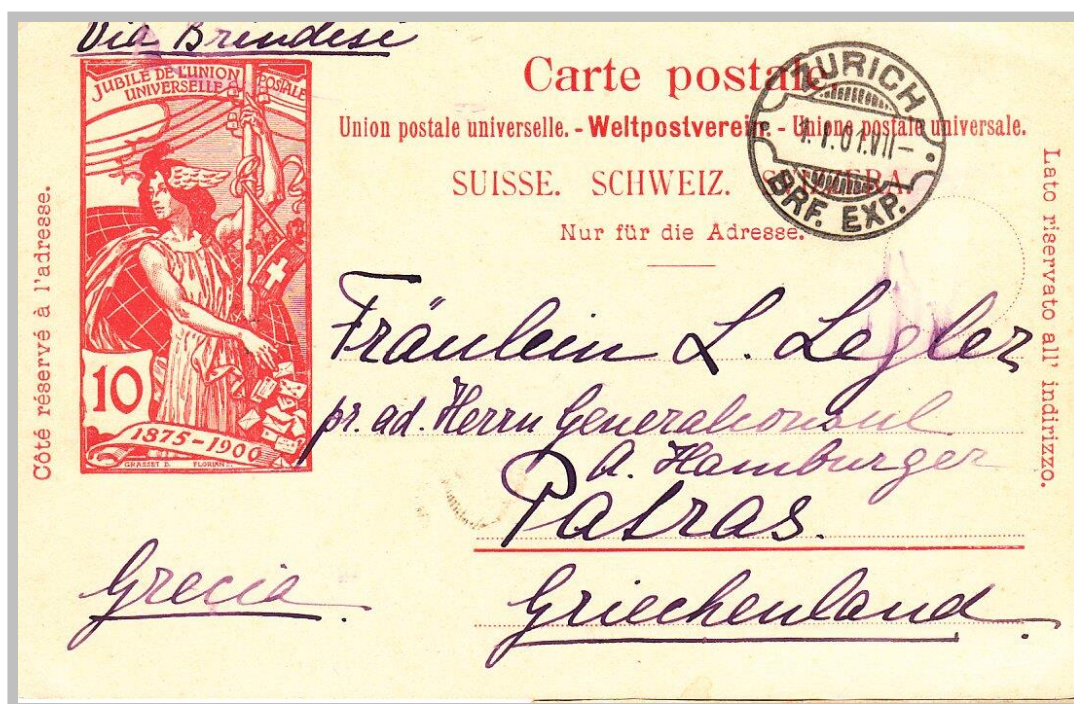 Via Brindisi
JUBILÉ DE L'UNION
POSTALE
UNIVERSELLE
10
1875-1900
GRASSET D. FLORIAN
Carte postale.
Union postale universelle. - Weltpostverein. - Unione postale universale.
SUISSE. SCHWEIZ. SVIZZERA.
Nur für die Adresse.
ZÜRICH
BRF. EXP.
Côté réservé à l'adresse.
Lato riservato all' indirizzo.
Fräulein L. Legler
pr. ad. Herrn Generalkonsul
A. Hamburger
Patras.
Grecia.
Griechenland.